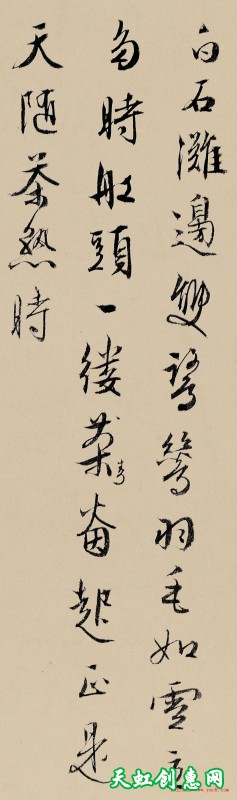 白石灘邊雙鷺鷥羽毛如雪立
多時舡頭一縷青起正是
天隨茶熟時
天虹创惠网